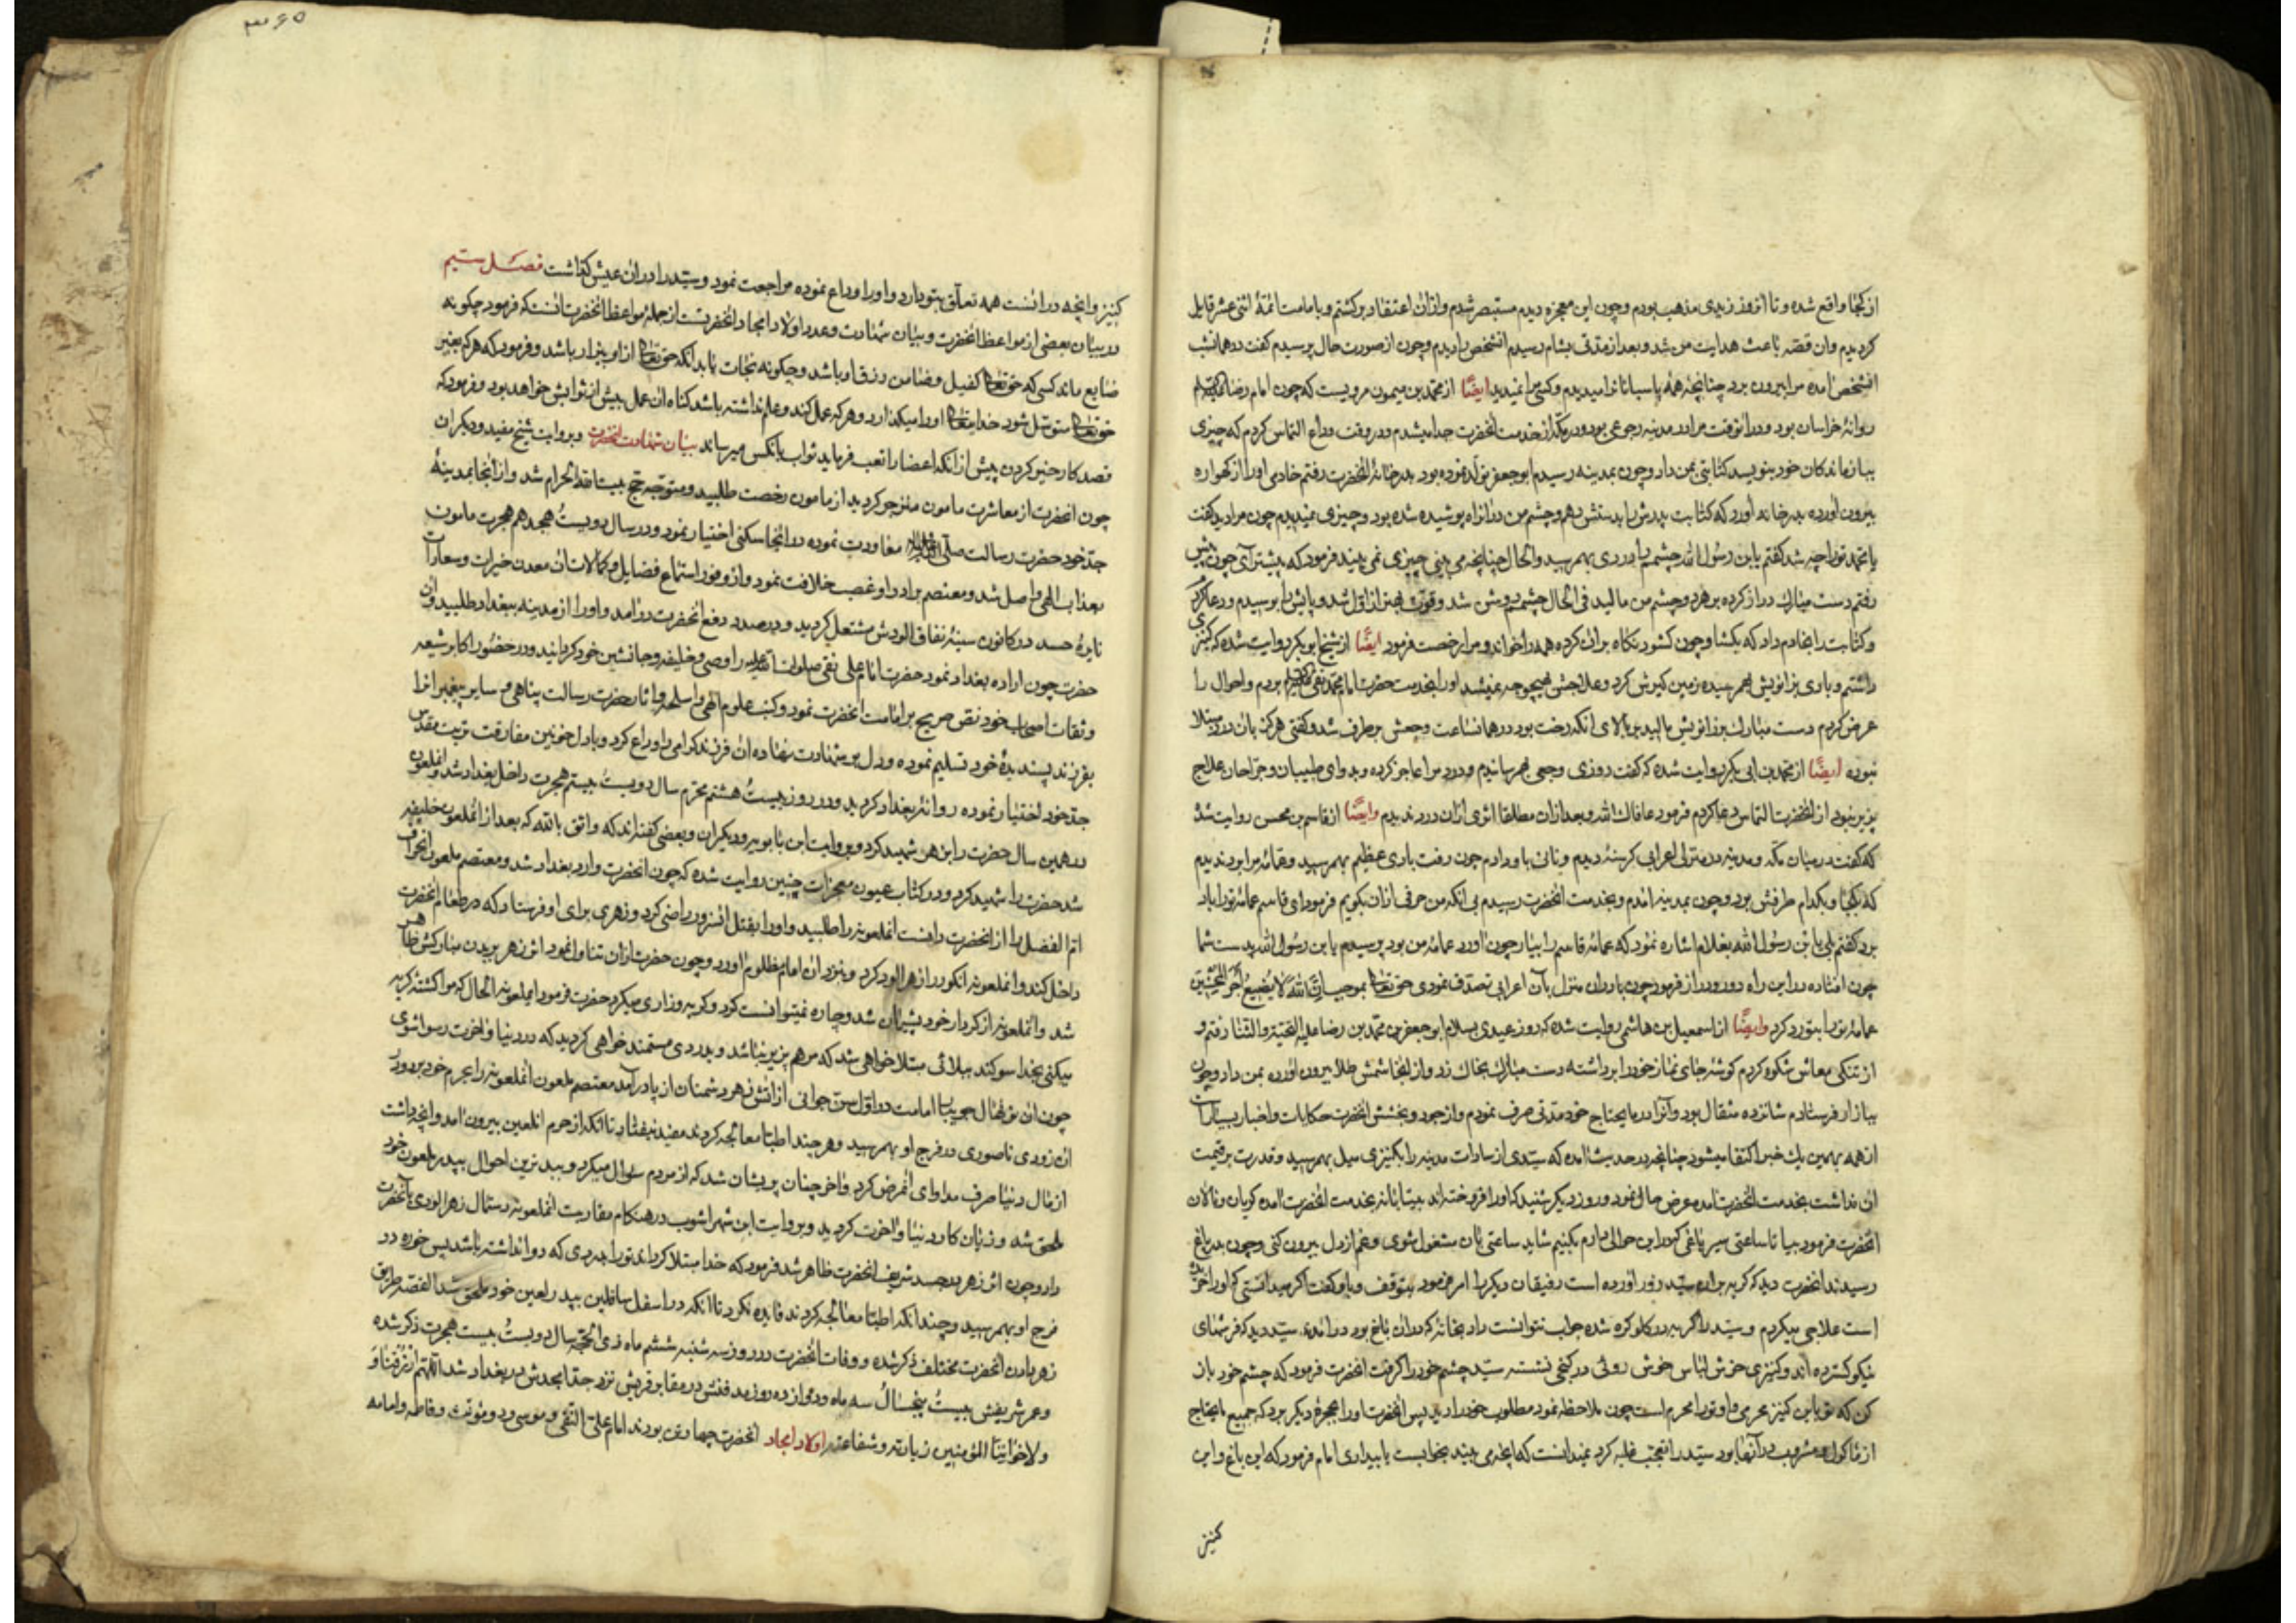 از کجا واقع شده و تا آنروز زیدی مذهب بودم و چون این معجزه دیدم مستبصر شدم و ازان اعتقاد برکشتم و بامامت ائمهٔ اثنی عشر قایل
کردیدم وان قصه باعث هدایت من شد و بعد از مدتی بشام رسیدم انشخص را دیدم و چون از صورت حال پرسیدم کفت در همان شب
انشخص امده مرا بیرون برد چنانچه همهٔ پاسبانان را میدیدم و کسی مرا نمیدید ایضًا از محمد بن میمون مرویست که چون امام رضا
روانهٔ خراسان بود و در انوقت مرا در مدینه رجوعی بود و در مکه از خدمت انحضرت جدا میشدم و در وقت وداع التماس کردم که چیزی
ببازماندکان خود بنویسد کتابتی بمن داد و چون بمدینه رسیدم ابوجعفر تولد نموده بود بدر خانهٔ انحضرت رفتم خادمی او را از کهواره
بیرون آورده بدر خانه آورد که کتابت پدرش را بدستش دهم و چشم من در انراه پوشیده شده بود و چیزی نمیدیدم چون مرا دید کفت
یا محمد ترا چه شد کفتم یابن رسول الله چشمم را دردی بهمرسید والحال چنانچه می بینی چیزی نمی بیند فرمود که پیشتر آی چون پیش
رفتم دست مبارک دراز کرده بر هر دو چشم من مالید فی الحال چشمم روشن شد و قوتش بهتر از اول شد و پایش را بوسیدم و دعا کردم
و کتابت را بخادم داد که بکشا و چون کشود نکاه بران کرده همه را خواند و مرا رخصت فرمود ایضًا از شیخ ابوبکر روایت شده که کنیزی
داشتم و بادی بزانویش بهمرسیده زمین کیرش کرد و علاجش بهیچوجه نمیشد او را بخدمت حضرت امام محمد تقی بردم و احوال را
عرض کردم دست مبارک بر زانویش مالید بر بالای انکه رخت بود در همانساعت وجعش بر طرف شد و کفتی هرکز بان درد مبتلا
نبوده ایضًا از محمد بن ابی بکر روایت شده که کفت روزی وجعی بهمرسانیدم و درد مرا عاجز کرده و بدوای طبیبان و جراحان علاج
پزیر نبود از انحضرت التماس دعا کردم فرمود عافاک الله و بعد ازان مطلقا اثری ازان درد ندیدم وایضًا از قاسم بن محسن روایت شده
که کفت در میان مکه و مدینه در منزلی اعرابی کرسنه دیدم و نانی باو دادم چون رفت بادی عظیم بهمرسید و عمامهٔ مرا برد ندیدم
که بکجا و بکدام طرفش برد و چون بمدینه امدم و بخدمت انحضرت رسیدم بی انکه من حرفی ازان بکویم فرمود ای قاسم عمامهٔ ترا باد
برد کفتم بلی یابن رسول الله بغلام اشاره نمود که عمامهٔ قاسم را بیار چون اورد عمامهٔ من بود پرسیدم یابن رسول الله بدست شما
چون افتاده در این راه دور و دراز فرمود چون بادران منزل بآن اعرابی تصدق نمودی حق تعالی بموجب ان الله لا یضیع اجر المحسنین
عمامهٔ ترا بتو رد کرد وایضًا از اسمعیل بن هاشمی روایت شده که روز عیدی بسلام ابو جعفر بن محمد بن رضا علیه التحیة والثنا رفتم و
از تنکی معاش شکوه کردم کوشهٔ جای نماز خود را برداشته دست مبارک بخاک زد و از انجا شمش طلا بیرون اورده بمن داد و چون
ببازار فرستادم شانزده مثقال بود و آنرا در مایحتاج خود مدتی صرف نمودم و از جود و بخشش انحضرت حکایات و اخبار بسیار است
از همه بهمین یک خبر اکتفا میشود چنانچه در حدیث امده که سیدی از سادات مدینه را بکنیزی میل بهمرسید و قدرت بر قیمت
ان نداشت بخدمت انحضرت امده عرض حال نمود و روز دیکر شنید که او را فروخته اند بیتابانه بخدمت انحضرت امده کریان و نالان
انحضرت فرمود بیا تا ساعتی سیر باغی که در این حوالی دارم بکنیم شاید ساعتی بان مشغول شوی و غم از دل بیرون کنی و چون بدر باغ
رسیدند انحضرت دید که کریه بران سید زور اورده است رفیقان دیکر را امر فرمود بتوقف و باو کفت اکر میدانستی که او را خریده
است علاجی میکردم و سید را کریه در کلو کره شده جواب نتوانست داد بخانهٔ که دران باغ بود در امدند سید دید که فرشهای
نیکو کسترده اند و کنیزی خوش لباس خوش روئی در کنجی نشسته سید چشم خود را کرفت انحضرت فرمود که چشم خود باز
کن که تو باین کنیز محرمی و او ترا محرم است چون ملاحظه نمود مطلوب خود را دید پس انحضرت او را بحجرهٔ دیکر برد که جمیع مایحتاج
از ماکول و مشروب در آنها بود سید را تعجب غلبه کرد نمیدانست که انچه می بیند بخوابست یا بیداری امام فرمود که این باغ و این
کنیز
۳۶۵
کنیز و انچه در انست همه تعلق بتو دارد و او را وداع نموده مراجعت نمود و سید را دران عیش کذاشت فصل سیم
در بیان بعضی از مواعظ انحضرت و بیان شهادت و عدد اولاد امجاد انحضرتست از جملهٔ مواعظ انحضرت انست که فرمود چکونه
ضایع ماند کسی که حق تعالی کفیل و ضامن رزق او باشد و چکونه نجات یابد انکه حق تعالی از او بیزار باشد و فرمود که هر که بغیر
حق تعالی متوسل شود خدایتعالی او را میکذارد و هر که عمل کند و علم نداشته باشد کناه ان عمل بیش از ثوابش خواهد بود و فرمود که
قصد کار خیر کردن پیش از انکه اعضا را تعب فرماید ثواب بانکس میرساند بیان شهادت انحضرت و بروایت شیخ مفید و دیکران
چون انحضرت از معاشرت مامون منزجر کردید از مامون رخصت طلبید و متوجه حج بیت الله الحرام شد و از انجا بمدینهٔ
جد خود حضرت رسالت صلی الله علیه و اله معاودت نموده در انجا سکنی اختیار نمود و در سال دویست هجدهم هجرت مامون
بعذاب الهی واصل شد و معتصم برادر او غصب خلافت نمود و از وفور استماع فضایل و کمالات ان معدن خیرات و سعادات
نایرهٔ حسد در کانون سینهٔ نفاق الودش مشتعل کردید و در صدد دفع انحضرت درامد و او را از مدینه ببغداد طلبید و ان
حضرت چون اراده بغداد نمود حضرت امام علی نقی صلوات الله علیه را وصی و خلیفه و جانشین خود کردانید و در حضور اکابر شیعه
و ثقات اصحاب خود نص صریح بر امامت انحضرت نمود و کتب علوم الهی و اسلحه و اثار حضرت رسالت پناهی و سایر پیغمبرانرا
بفرزند پسندیدهٔ خود تسلیم نموده و دل بر شهادت نهاده ان فرزند کرامی را وداع کرد و با دل خونین مفارقت تربت مقدس
جد خود اختیار نموده روانهٔ بغداد کردید و در روز بیست هشتم محرم سال دویست بیستم هجرت داخل بغداد شد و انملعون
در همین سال حضرت را بزهر شهید کرد و بروایت ابن بابویه و دیکران و بعضی کفته اند که واثق بالله که بعد از انملعون خلیفه
شد حضرت را شهید کرد و در کتاب عیون معجزات چنین روایت شده که چون انحضرت وارد بغداد شد و معتصم ملعون انحراف
ام الفضل را از انحضرت دانست انملعونه را طلبید و او را بقتل انسرور راضی کرد و زهری برای او فرستاد که در طعام انحضرت
داخل کند و انملعونه انکور را زهر الود کرد و بنزد ان امام مظلوم اورد و چون حضرت ازان تناول نمود اثر زهر بر بدن مبارکش ظاهر
شد و انملعونه از کردار خود پشیمان شد و چاره نمیتوانست کرد و کریه و زاری میکرد حضرت فرمود ایملعونه الحال که مرا کشتهٔ کریه
میکنی بخدا سوکند ببلائی مبتلا خواهی شد که مرهم پزیر نباشد و بدردی مستمند خواهی کردید که در دنیا و اخرت رسوا شوی
چون ان نونهال جویبار امامت در اول سن جوانی از اتش زهر دشمنان از پا درآمد معتصم ملعون انملعونه را بحرم خود برد و در
ان زودی ناصوری در فرج او بهمرسید و هر چند اطبا معالجه کردند مفید نیفتاد تا انکه از حرم انلعین بیرون امد و انچه داشت
از مال دنیا صرف مداوای انمرض کرد و اخر چنان پریشان شد که از مردم سوال میکرد و ببدترین احوال بپدر ملعون خود
ملحق شد و زیان کار دنیا و اخرت کردید و بروایت ابن شهراشوب در هنکام مقاربت انملعونه دستمال زهر الودی بانحضرت
داد و چون اثر زهر در جسد شریف انحضرت ظاهر شد فرمود که خدا مبتلا کرداند ترا بدردی که دوا نداشته باشد پس خوره در
فرج او بهمرسید و چندانکه اطبا معالجه کردند فایده نکرد تا انکه در اسفل سافلین بپدر لعین خود ملحق شد القصه طریق
زهر دادن انحضرت مختلف ذکر شده و وفات انحضرت در روز سه شنبه ششم ماه ذی الحجه سال دویست بیست هجرت ذکر شده
و عمر شریفش بیست پنجسال سه ماه و دوازده روز مدفنش در مقابر قریش نزد جد امجدش در بغداد شد اللهم ارزقنا و
ولاخواننا المؤمنین زیارته و شفاعته اولاد امجاد انحضرت چهار تن بودند امام علی النقی و موسی و دو مؤنث و فاطمه و امامه